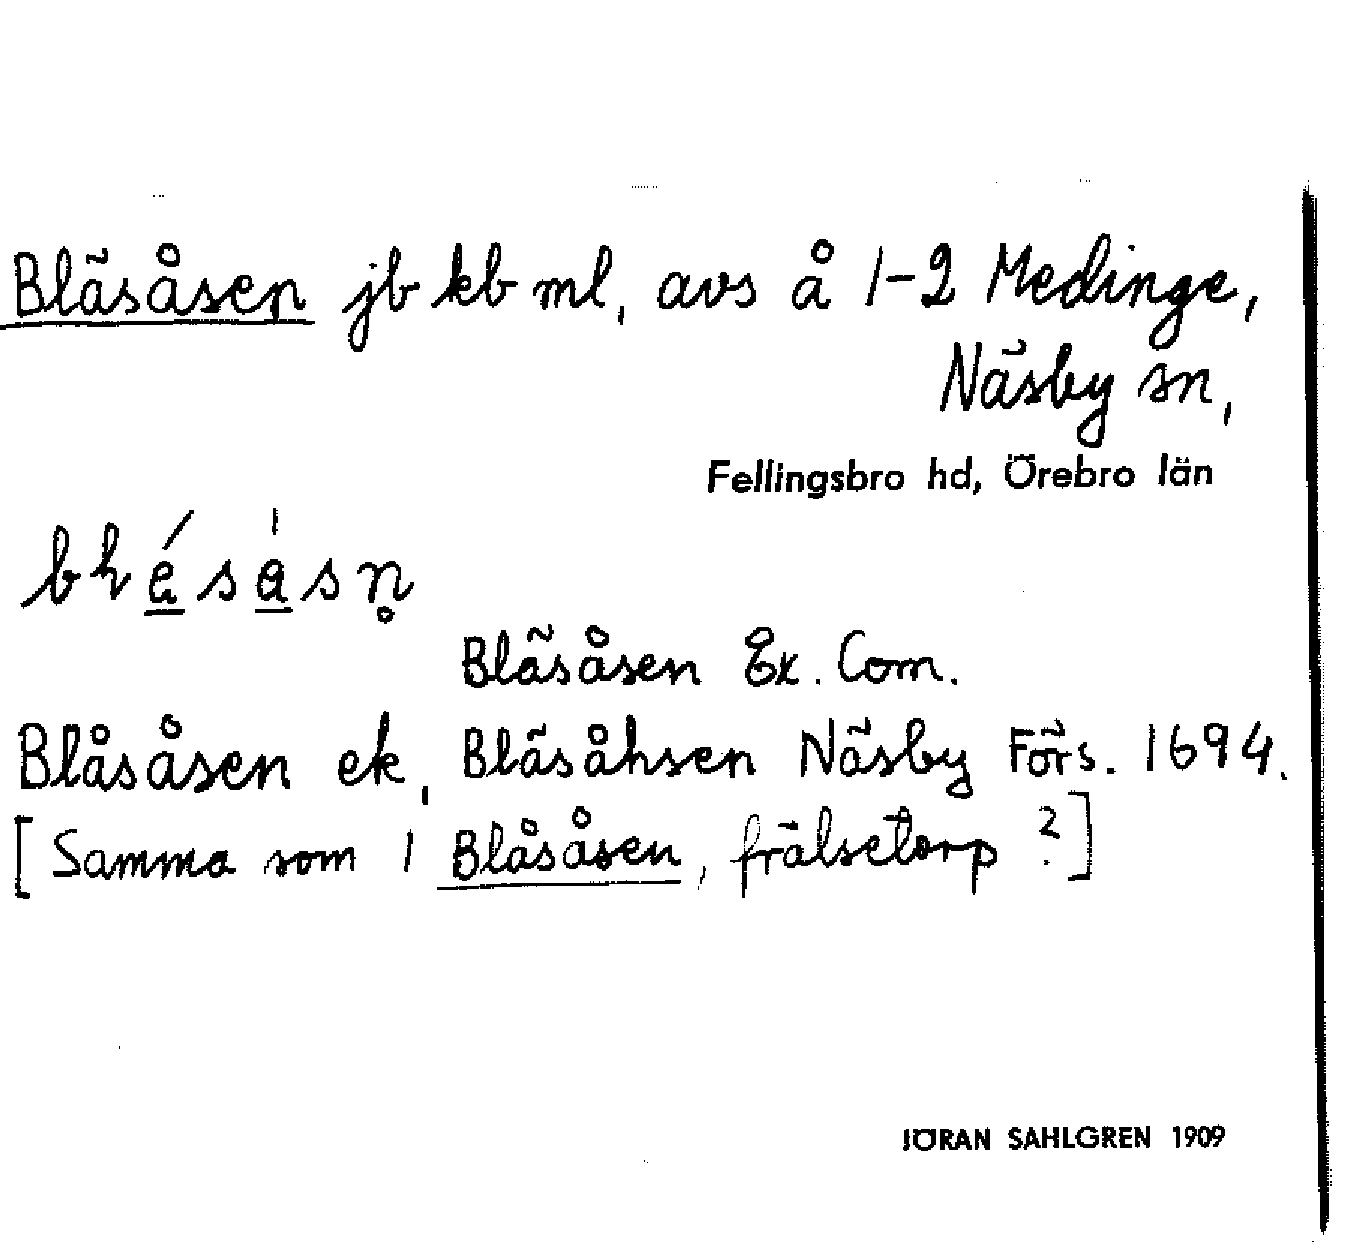 Bläsåsen jb kb ml, avs å 1-2 Medinge,
Näsby sn,
Fellingsbro hd, Örebro län
Bläsåsen Ek. Com.
Blåsåsen ek, Bläsåhsen Näsby Förs. 1694.
[Samma som 1 Blåsåsen, frälsetorp ?]
JÖRAN SAHLGREN 1909